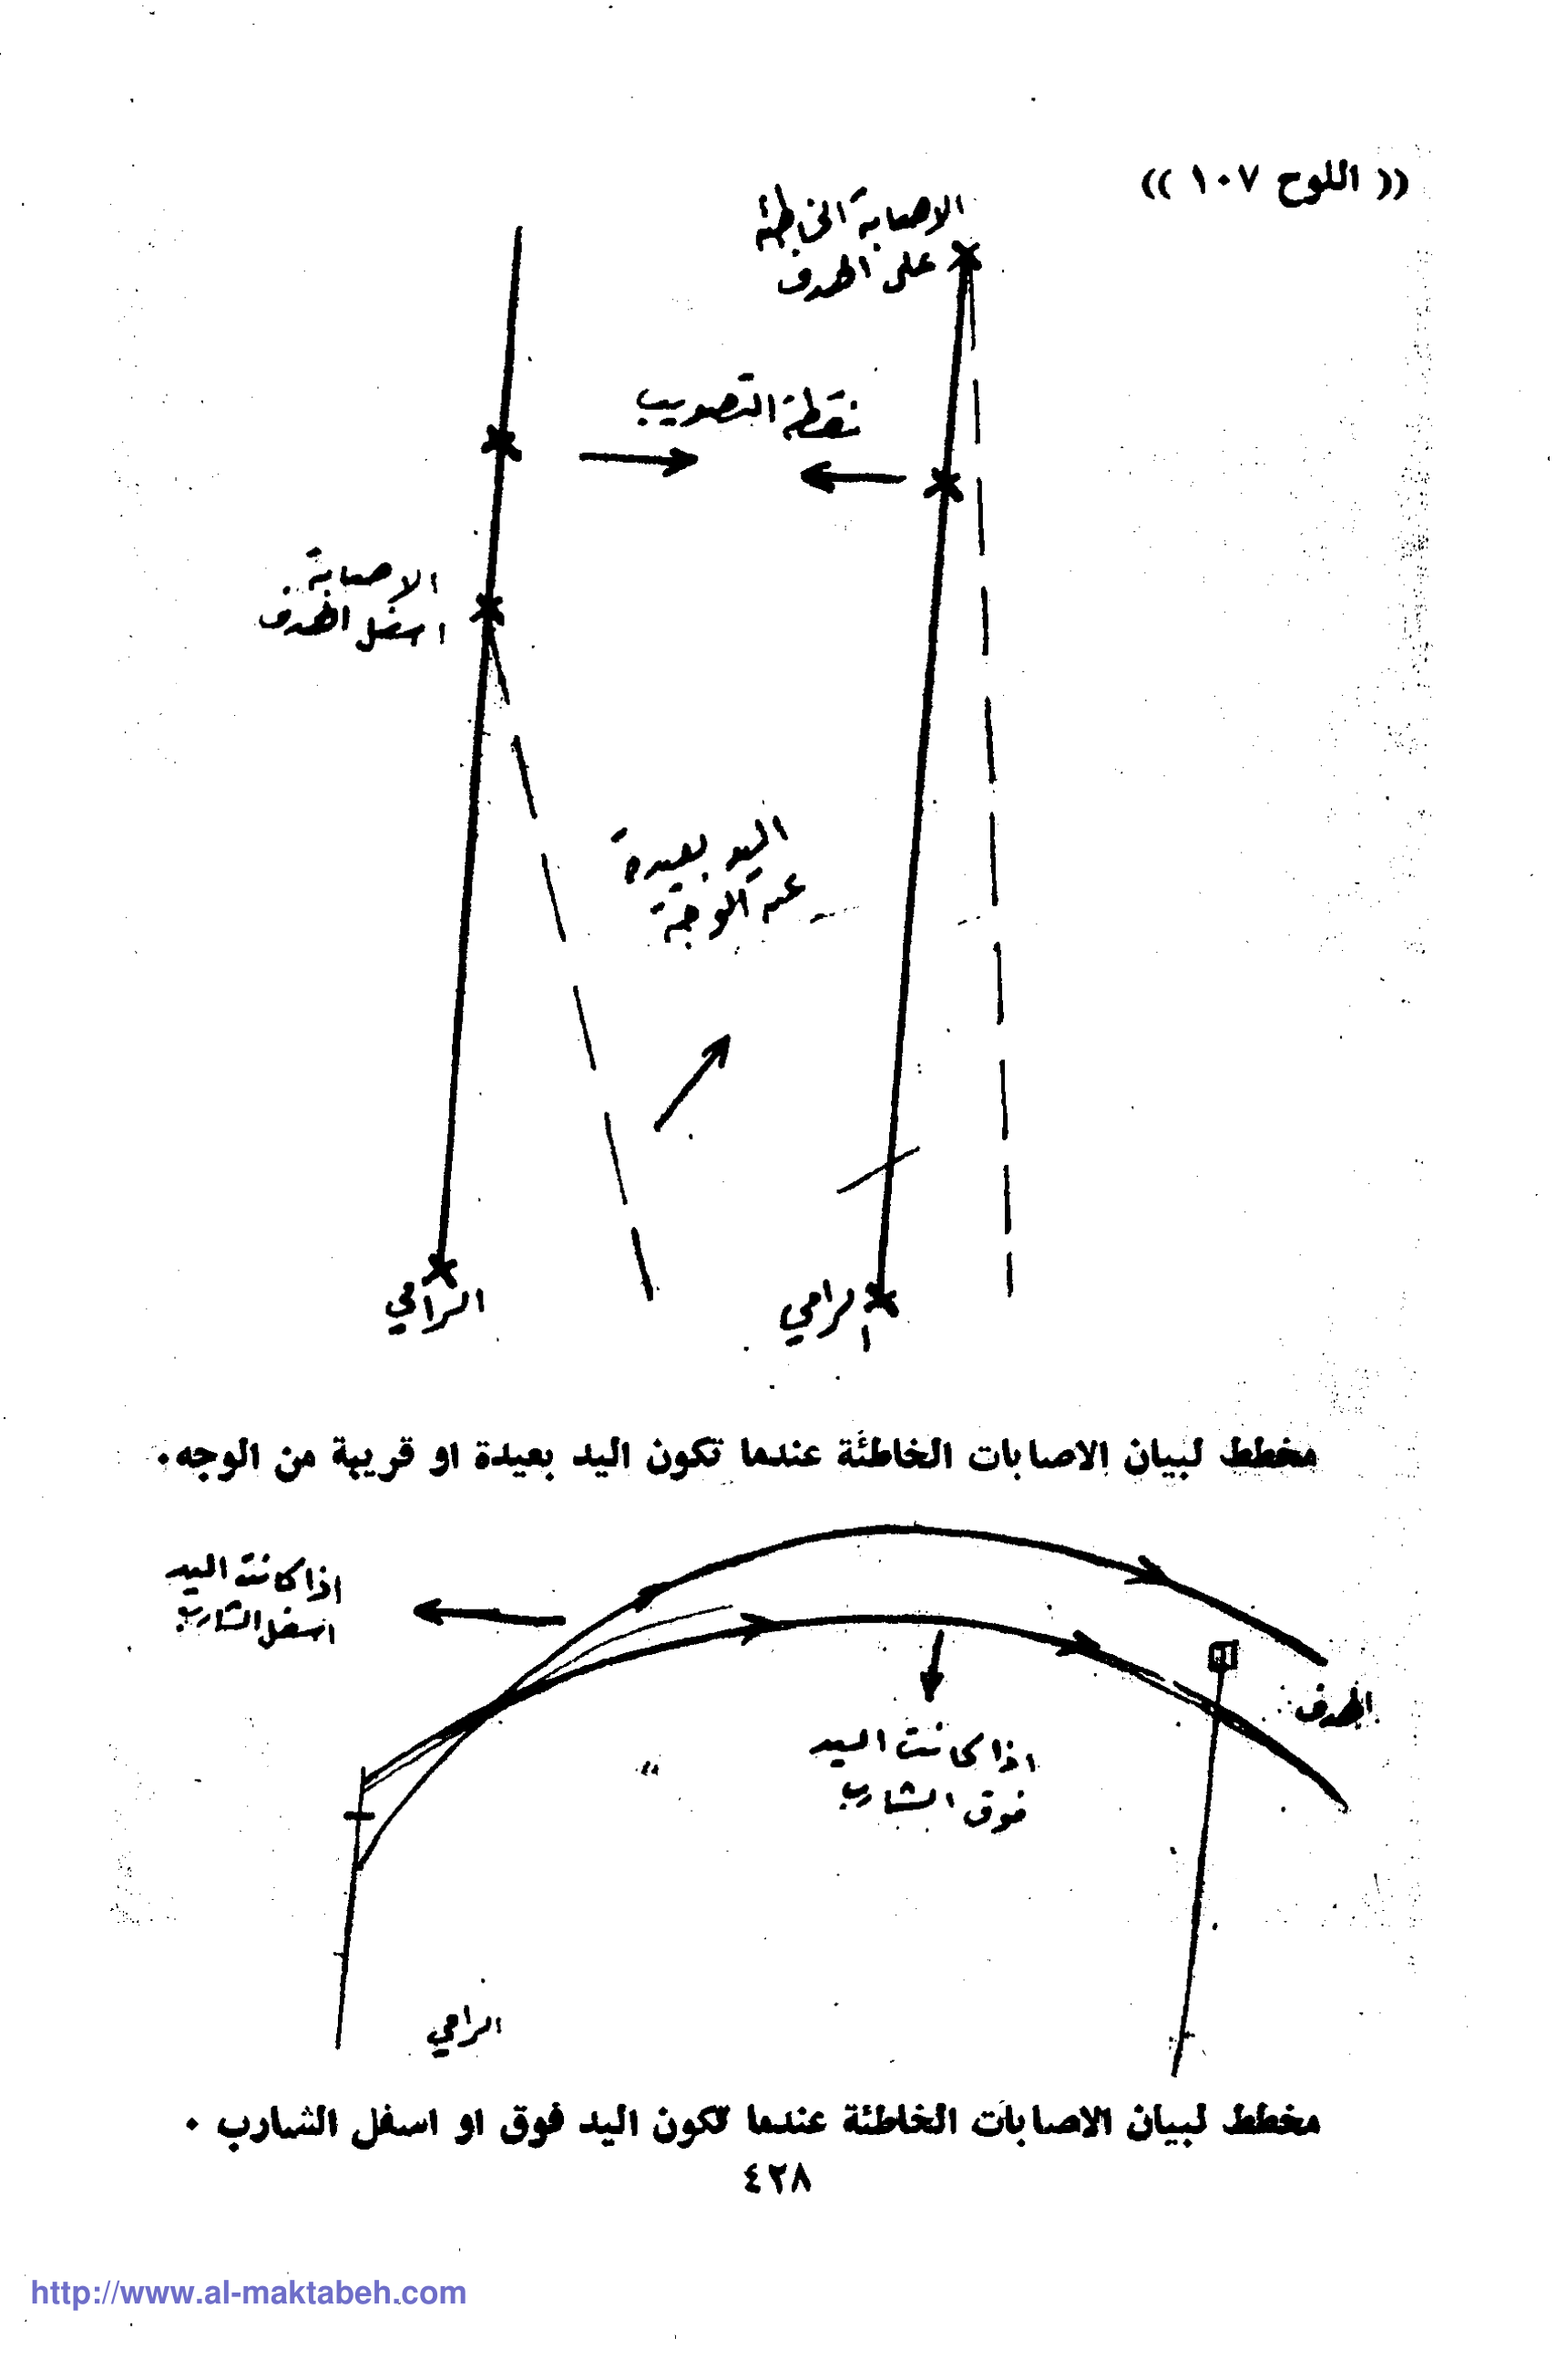 (( اللوح ١٠٧ ))
الاصابة الخاطئة
على الهدف
نقطة التصويب
الاصابة
اسفل الهدف
اليد بعيدة
عن الوجة
الرامي
الرامي
مخطط لبيان الاصابات الخاطئة عندما تكون اليد بعيدة او قريبة من الوجه٠
اذا كانت اليد
اسفل الشارب
الهدف
اذا كانت اليد
فوق الشارب
الرامي
مخطط لبيان الاصابات الخاطئة عندما تكون اليد فوق او اسفل الشارب ٠
٤٢٨
http://www.al-maktabeh.com